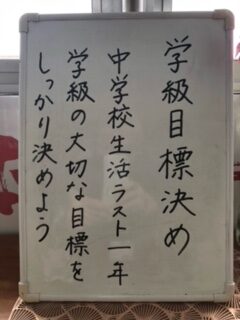 学級目標決め
中学校生活ラスト一年
学級の大切な目標を
しっかり決めよう